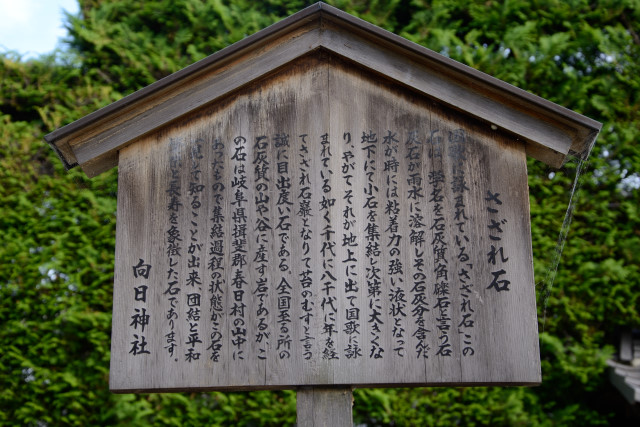 さざれ石
国歌に詠まれている、さざれ石、この
石は、学名を石灰質角礫石と言う石
灰石が雨水に溶解しその石灰分を含んだ
水が時には粘着力の強い液状となって
地下にて小石を集結し次第に大きくな
り、やがてそれが地上に出て国歌に詠
まれている如く千代に八千代に年を経
てさざれ石巌となりて苔のむすと言う
誠に目出度い石である、全国至る所の
石灰質の山や谷に産す岩であるが、こ
の石は岐阜県揖斐郡春日村の山中に
あったもので集結過程の状態がこの石を
見て知ることが出来、団結と平和
と長寿を象徴した石であります。
向日神社